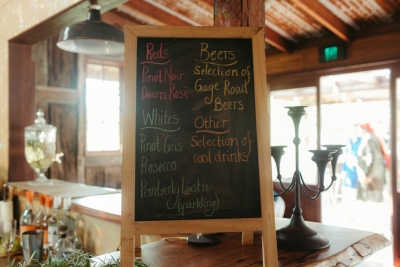 Reds
Pinot Noir
Dawn Rosé
Whites
Pinot Gris
Prosecco
Pemberly Lustre
(sparkling)
Beers
Selection of
Gage Road
Beers
Other
Selection of
cool drinks